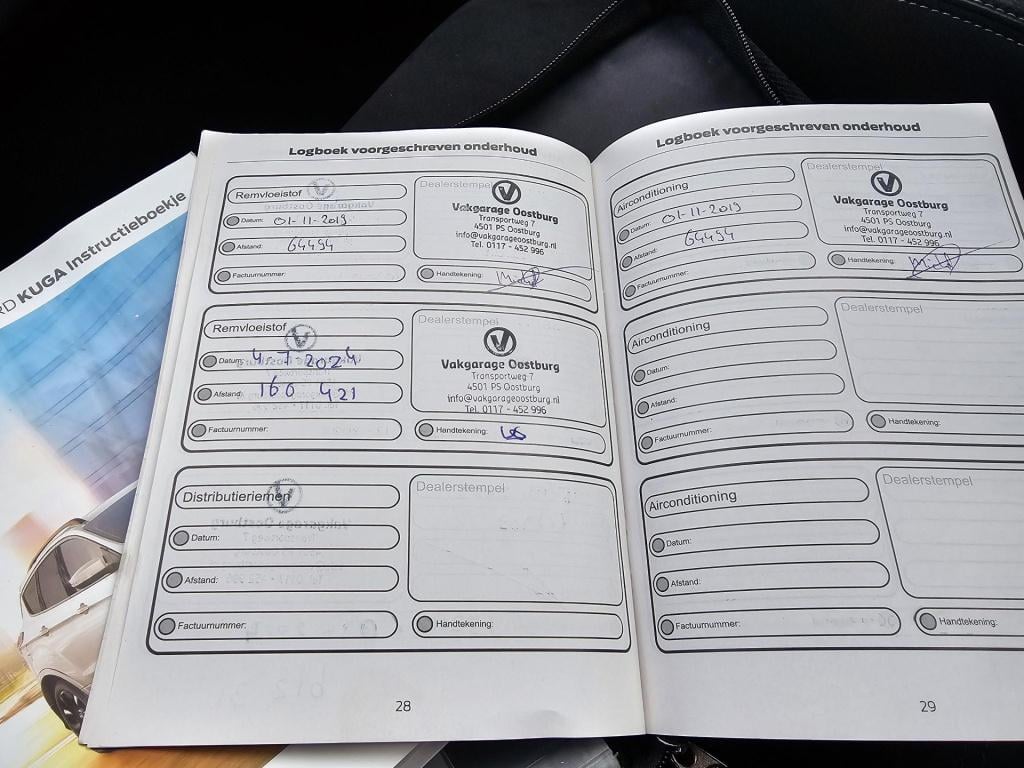 RD KUGA Instructieboekje
Logboek voorgeschreven onderhoud
Remvloeistof
Datum: 01-11-2019
Afstand: 64494
Factuurnummer:
Dealerstempel
Vakgarage Oostburg
Transportweg 7
4501 PS Oostburg
info@vakgarageoostburg.nl
Tel. 0117 - 452 996
Handtekening:
Remvloeistof
Datum: 4-7-2024
Afstand: 160 421
Factuurnummer:
Dealerstempel
Vakgarage Oostburg
Transportweg 7
4501 PS Oostburg
info@vakgarageoostburg.nl
Tel. 0117 - 452 996
Handtekening:
Distributieriemen
Datum:
Afstand:
Factuurnummer:
Dealerstempel
Handtekening:
28
Logboek voorgeschreven onderhoud
Airconditioning
Datum: 01-11-2019
Afstand: 64494
Factuurnummer:
Dealerstempel
Vakgarage Oostburg
Transportweg 7
4501 PS Oostburg
info@vakgarageoostburg.nl
Tel. 0117 - 452 996
Handtekening:
Airconditioning
Datum:
Afstand:
Factuurnummer:
Dealerstempel
Handtekening:
Airconditioning
Datum:
Afstand:
Factuurnummer:
Dealerstempel
Handtekening:
29